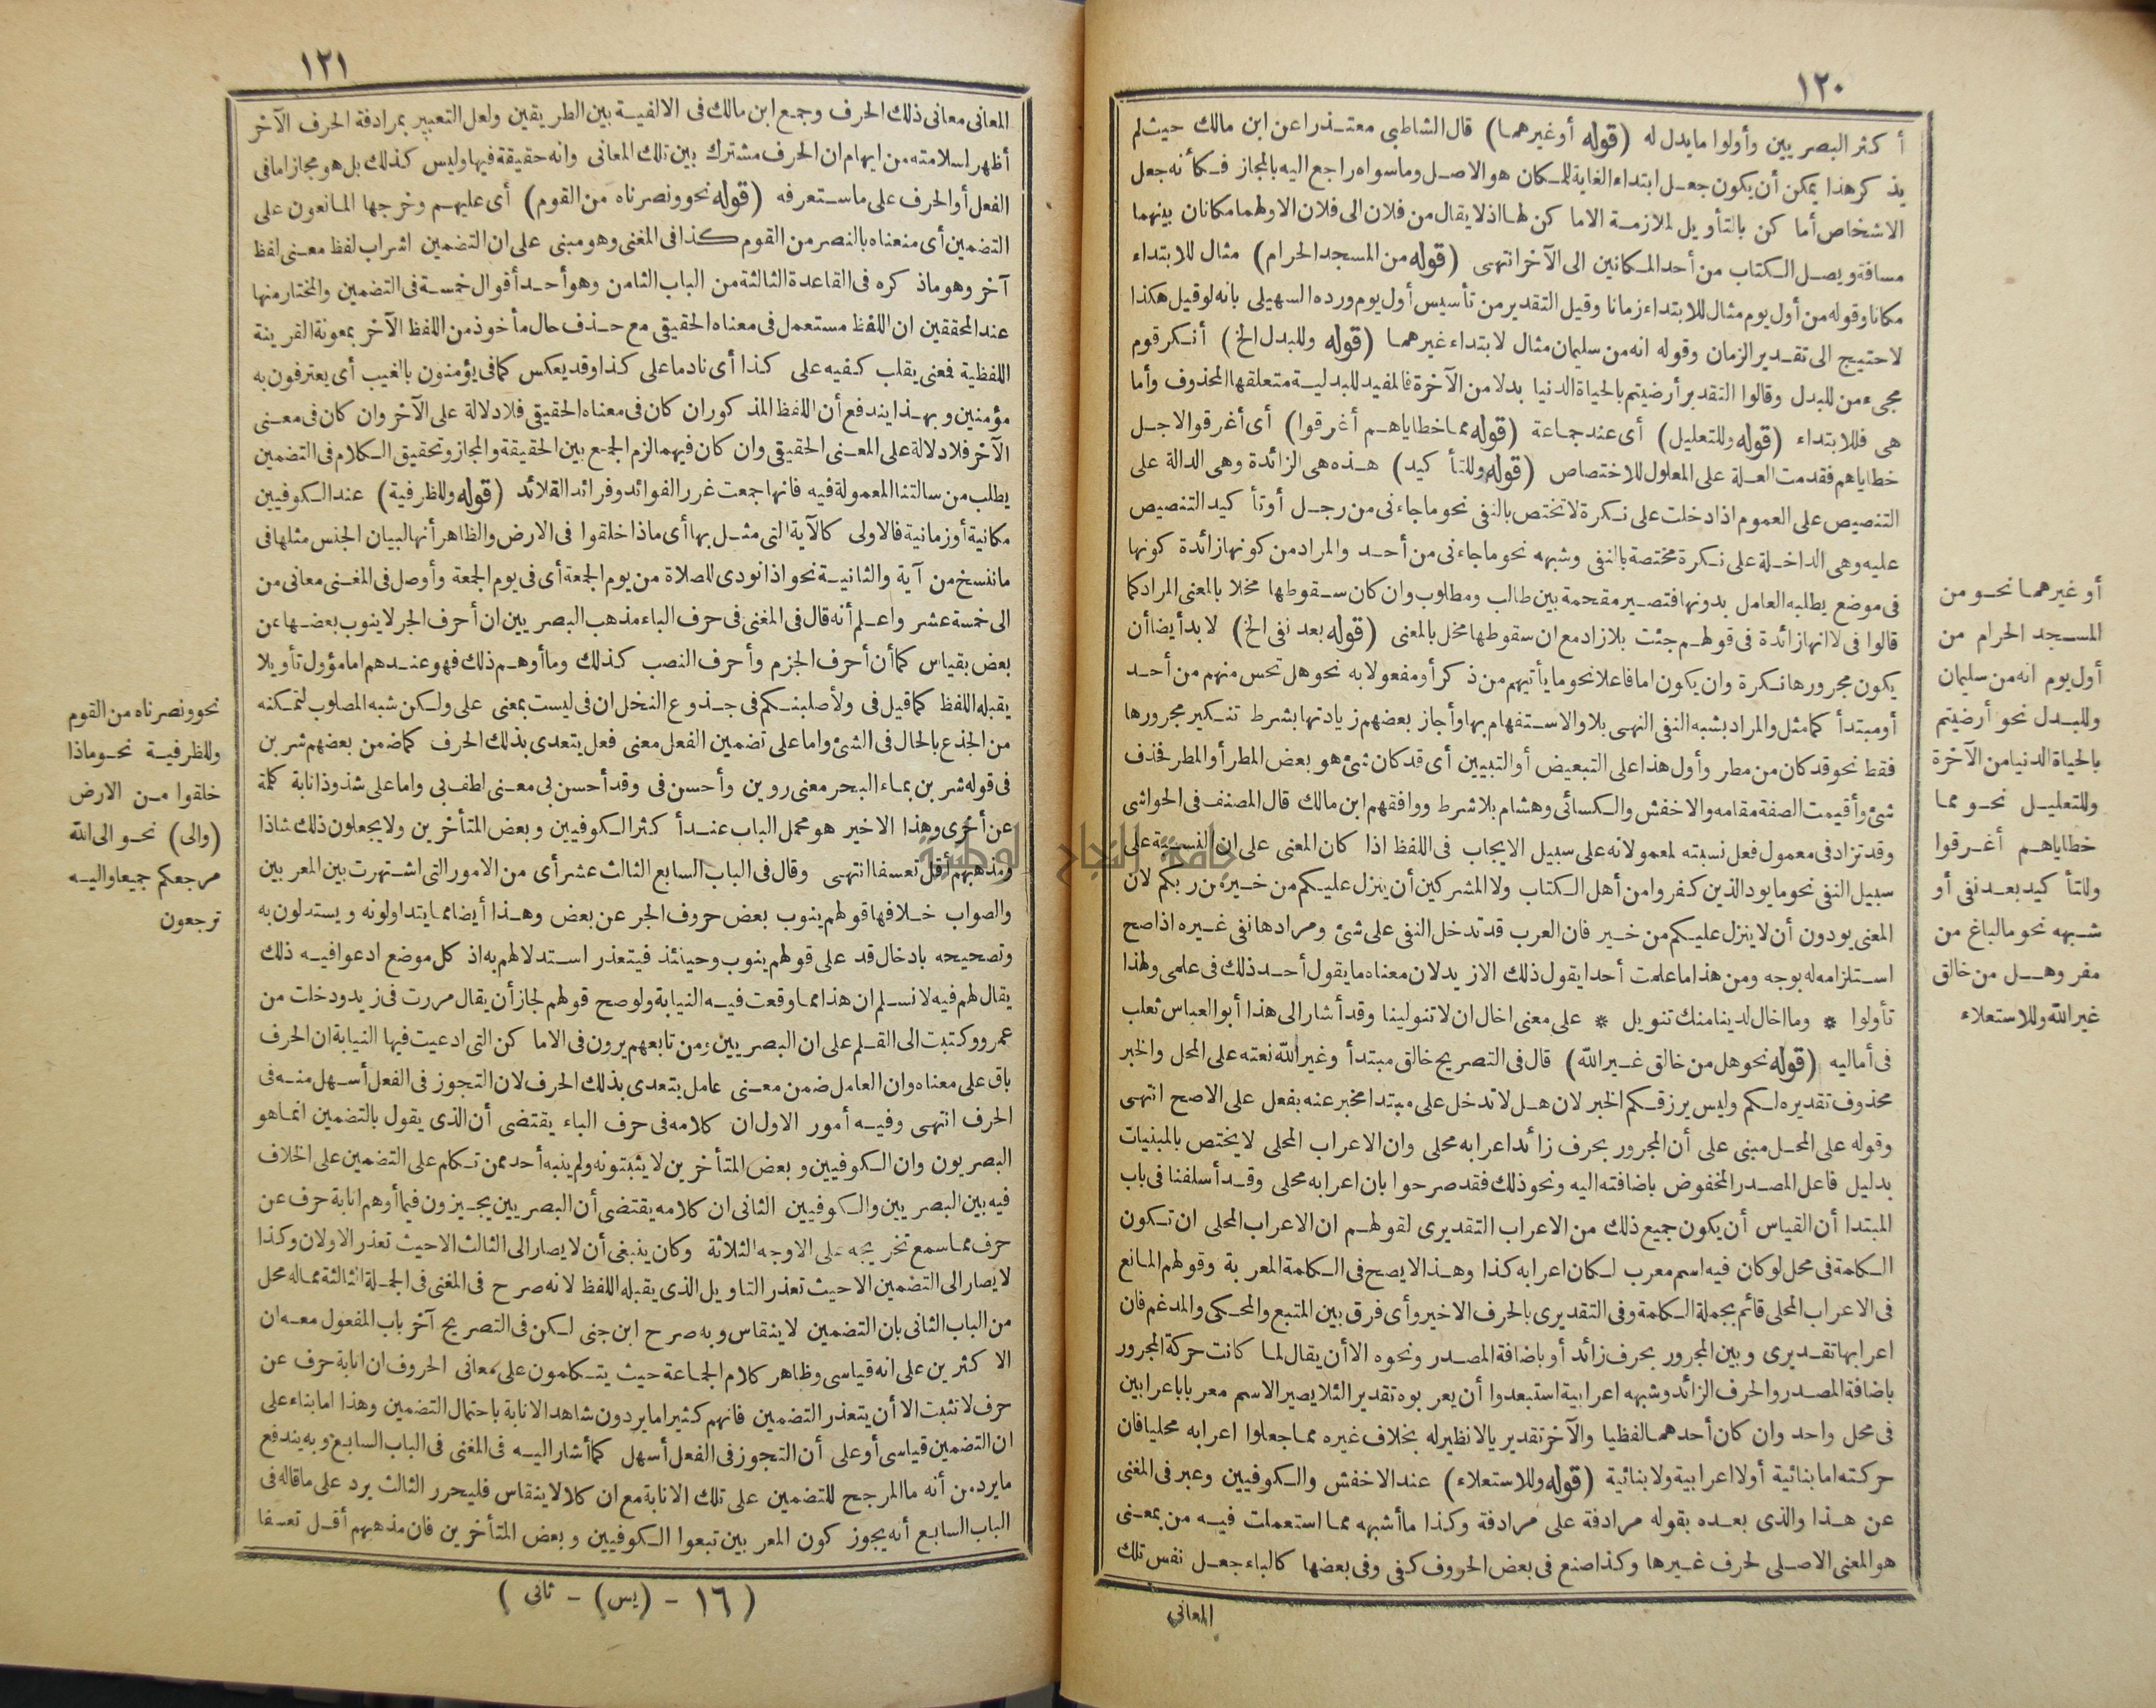 ١٢٠
أكثر البصريين وأولوا ما يدل له (قوله أو غيرهما) قال الشاطبي معتذرا عن ابن مالك حيث لم
يذكر هذا يمكن أن يكون جعل ابتداء الغاية للمكان هو الاصل وما سواه راجع اليه بالمجاز فكأنه جعل
الاشخاص أماكن بالتأويل لملازمة الاماكن لها اذ لا يقال من فلان الى فلان الا ولهما مكانان بينهما
مسافة ويصل الكتاب من أحد المكانين الى الآخر انتهى (قوله من المسجد الحرام) مثال للابتداء
مكانا وقوله من أول يوم مثال للابتداء زمانا وقيل التقدير من تأسيس أول يوم ورده السهيلي بانه لو قيل هكذا
لاحتيج الى تقدير الزمان وقوله انه من سليمان مثال لابتداء غيرهما (قوله وللبدل الخ) أنكر قوم
مجيء من للبدل وقالوا التقدير أرضيتم بالحياة الدنيا بدلا من الآخرة فالمفيد للبدلية متعلقها المحذوف وأما
هى فللابتداء (قوله وللتعليل) أى عند جماعة (قوله مما خطاياهم أغرقوا) أى أغرقوا لاجل
خطاياهم فقدمت العلة على المعلول للاختصاص (قوله وللتأكيد) هذه هى الزائدة وهى الدالة على
التنصيص على العموم اذا دخلت على نكرة لا تختص بالنفى نحو ما جاءنى من رجل أو تأكيد التنصيص
عليه وهى الداخلة على نكرة مختصة بالنفى وشبهه نحو ما جاءنى من أحد والمراد من كونها زائدة كونها
فى موضع يطلبه العامل بدونها فتصير مقحمة بين طالب ومطلوب وان كان سقوطها مخلا بالمعنى المراد كما
قالوا فى لا انها زائدة فى قولهم جئت بلا زاد مع ان سقوطها مخل بالمعنى (قوله بعد نفى الخ) لا بد أيضا أن
يكون مجرورها نكرة وان يكون اما فاعلا نحو ما يأتيهم من ذكر أو مفعولا به نحو هل تحس منهم من أحد
أو مبتدأ كما مثل والمراد بشبه النفى النهى بلا والاستفهام بها وأجاز بعضهم زيادتها بشرط تنكير مجرورها
فقط نحو قد كان من مطر وأول هذا على التبعيض أو التبيين أى قد كان شئ هو بعض المطر أو المطر فحذف
شئ وأقيمت الصفة مقامه والاخفش والكسائى وهشام بلا شرط ووافقهم ابن مالك قال المصنف فى الحواشى
وقد تزاد فى معمول فعل نسبته لمعموله على سبيل الايجاب فى اللفظ اذا كان المعنى على ان النسبة على
سبيل النفى نحو ما يود الذين كفروا من أهل الكتاب ولا المشركين أن ينزل عليكم من خير من ربكم لان
المعنى يودون أن لا ينزل عليكم من خير فان العرب قد تدخل النفى على شئ ومرادها نفى غيره اذا صح
استلزامه له بوجه ومن هذا ما علمت أحدا يقول ذلك الا زيد لان معناه ما يقول أحد ذلك فى علمى ولهذا
تأولوا * وما اخال لدينا منك تنويل * على معنى اخال ان لا تنولينا وقد أشار الى هذا أبو العباس ثعلب
فى أماليه (قوله نحو هل من خالق غير الله) قال فى التصريح خالق مبتدأ وغير الله نعته على المحل والخبر
محذوف تقديره لكم وليس يرزقكم الخبر لان هل لا تدخل على مبتدا مخبر عنه بفعل على الاصح انتهى
وقوله على المحل مبنى على أن المجرور بحرف زائد اعرابه محلى وان الاعراب المحلى لا يختص بالمبنيات
بدليل فاعل المصدر المخفوض باضافته اليه ونحو ذلك فقد صرحوا بان اعرابه محلى وقد أسلفنا فى باب
المبتدا أن القياس أن يكون جميع ذلك من الاعراب التقديرى لقولهم ان الاعراب المحلى ان تكون
الكلمة فى محل لو كان فيه اسم معرب لكان اعرابه كذا وهذا لا يصح فى الكلمة المعربة وقولهم المانع
فى الاعراب المحلى قائم بجملة الكلمة وفى التقديرى بالحرف الاخير وأى فرق بين المتبع والمحكى والمدغم فان
اعرابها تقديرى وبين المجرور بحرف زائد أو باضافة المصدر ونحوه الا أن يقال لما كانت حركة المجرور
باضافة المصدر والحرف الزائد وشبهه اعرابية استبعدوا أن يعربوه تقدير الئلا يصير الاسم معربا باعرابين
فى محل واحد وان كان أحدهما لفظيا والآخر تقديريا لا نظير له بخلاف غيره مما جعلوا اعرابه محليا فان
حركته اما بنائية أو لا اعرابية ولا بنائية (قوله وللاستعلاء) عند الاخفش والكوفيين وعبر فى المغنى
عن هذا والذى بعده بقوله مرادفة على مرادفة وكذا ما أشبهه مما استعملت فيه من بمعنى
هو المعنى الاصلى لحرف غيرها وكذا صنع فى بعض الحروف كفى وفى بعضها كالباء جعل نفس تلك
المعانى
أو غيرهما نحو من
المسجد الحرام من
أول يوم انه من سليمان
وللبدل نحو أرضيتم
بالحياة الدنيا من الآخرة
وللتعليل نحو مما
خطاياهم أغرقوا
وللتأكيد بعد نفى أو
شبهه نحو ما لباغ من
مفر وهل من خالق
غير الله وللاستعلاء
١٢١
المعانى معانى ذلك الحرف وجمع ابن مالك فى الالفية بين الطريقين ولعل التعبير بمرادفة الحرف الآخر
أظهر لسلامته من ايهام ان الحرف مشترك بين تلك المعانى وانه حقيقة فيها وليس كذلك بل هو مجاز اما فى
الفعل أو الحرف على ما ستعرفه (قوله نحو ونصرناه من القوم) أى عليهم وخرجها المانعون على
التضمين أى منعناه بالنصر من القوم كذا فى المغنى وهو مبنى على ان التضمين اشراب لفظ معنى لفظ
آخر وهو ما ذكره فى القاعدة الثالثة من الباب الثامن وهو أحد أقوال خمسة فى التضمين والمختار منها
عند المحققين ان اللفظ مستعمل فى معناه الحقيقى مع حذف حال مأخوذ من اللفظ الآخر بمعونة القرينة
اللفظية فمعنى يقلب كفيه على كذا أى نادما على كذا وقد يعكس كما فى يؤمنون بالغيب أى يعترفون به
مؤمنين وبهذا يندفع أن اللفظ المذكور ان كان فى معناه الحقيقى فلا دلالة على الآخر وان كان فى معنى
الآخر فلا دلالة على المعنى الحقيقى وان كان فيهما لزم الجمع بين الحقيقة والمجاز وتحقيق الكلام فى التضمين
يطلب من رسالتنا المعمولة فيه فانها جمعت غرر الفوائد وفرائد القلائد (قوله وللظرفية) عند الكوفيين
مكانية أو زمانية فالاولى كالآية التى مثل بها أى ماذا خلقوا فى الارض والظاهر أنها لبيان الجنس مثلها فى
ما ننسخ من آية والثانية نحو اذا نودى للصلاة من يوم الجمعة أى فى يوم الجمعة وأوصل فى المغنى معانى من
الى خمسة عشر واعلم أنه قال فى المغنى فى حرف الباء مذهب البصريين ان أحرف الجر لا ينوب بعضها عن
بعض بقياس كما أن أحرف الجزم وأحرف النصب كذلك وما أوهم ذلك فهو عندهم اما مؤول تأويلا
يقبله اللفظ كما قيل فى ولأصلبنكم فى جذوع النخل ان فى ليست بمعنى على ولكن شبه المصلوب لتمكنه
من الجذع بالحال فى الشئ واما على تضمين الفعل معنى فعل يتعدى بذلك الحرف كما ضمن بعضهم شربن
فى قوله شربن بماء البحر معنى روين وأحسن فى وقد أحسن بى معنى لطف بى واما على شذوذ انابة كلمة
عن أخرى وهذا الاخير هو محمل الباب عند أكثر الكوفيين وبعض المتأخرين ولا يجعلون ذلك شاذا
ومذهبهم أقل تعسفا انتهى وقال فى الباب السابع الثالث عشر أى من الامور التى اشتهرت بين المعربين
والصواب خلافها قولهم ينوب بعض حروف الجر عن بعض وهذا أيضا مما يتداولونه ويستدلون به
وتصحيحه بادخال قد على قولهم ينوب وحينئذ فيتعذر استدلالهم به اذ كل موضع ادعوا فيه ذلك
يقال لهم فيه لا نسلم ان هذا مما وقعت فيه النيابة ولو صح قولهم لجاز أن يقال مررت فى زيد ودخلت من
عمرو وكتبت الى القلم على ان البصريين ومن تابعهم يرون فى الاماكن التى ادعيت فيها النيابة ان الحرف
باق على معناه وان العامل ضمن معنى عامل يتعدى بذلك الحرف لان التجوز فى الفعل أسهل منه فى
الحرف انتهى وفيه أمور الاول ان كلامه فى حرف الباء يقتضى أن الذى يقول بالتضمين انما هو
البصريون وان الكوفيين وبعض المتأخرين لا يثبتونه ولم ينبه أحد ممن تكلم على التضمين على الخلاف
فيه بين البصريين والكوفيين الثانى ان كلامه يقتضى أن البصريين يجيزون فيما أوهم انابة حرف عن
حرف مما سمع تخريجه على الاوجه الثلاثة وكان ينبغى أن لا يصار الى الثالث الا حيث تعذر الاولان وكذا
لا يصار الى التضمين الا حيث تعذر التاويل الذى يقبله اللفظ لانه صرح فى المغنى فى الجملة الثالثة مما له محل
من الباب الثانى بان التضمين لا ينقاس وبه صرح ابن جنى لكن فى التصريح آخر باب المفعول معه ان
الاكثرين على انه قياسى وظاهر كلام الجماعة حيث يتكلمون على معانى الحروف ان انابة حرف عن
حرف لا تثبت الا أن يتعذر التضمين فانهم كثيرا ما يردون شاهد الانابة باحتمال التضمين وهذا اما بناء على
ان التضمين قياسى أو على أن التجوز فى الفعل أسهل كما أشار اليه فى المغنى فى الباب السابع وبه يندفع
ما يرد من أنه ما المرجح للتضمين على تلك الانابة مع ان كلا لا ينقاس فليحرر الثالث يرد على ما قاله فى
الباب السابع أنه يجوز كون المعربين تبعوا الكوفيين وبعض المتأخرين فان مذهبهم أقل تعسفا
نحو ونصرناه من القوم
وللظرفية نحو ماذا
خلقوا من الارض
(والى) نحو الى الله
مرجعكم جميعا واليه
ترجعون
(١٦ - (يس) - ثانى)
جامعة النجاح الوطنية